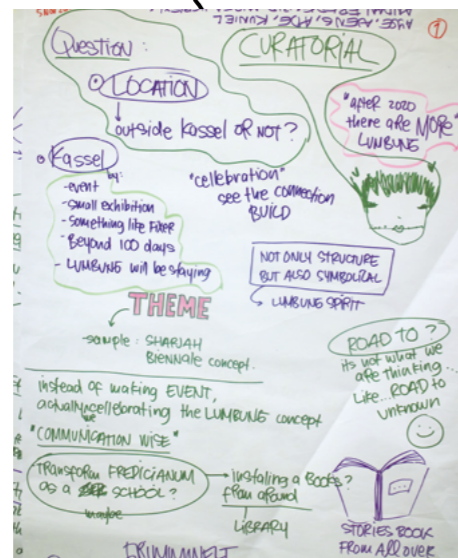 AYSE, AJENG, ADE, KUNIEL
1
Question:
CURATORIAL
LOCATION
outside Kassel OR NOT?
"after 2020
there are MORE
LUMBUNG
Kassel
by:
-event
-small exhibition
-something like Fixer
-Beyond 100 days
- LUMBUNG will be staying
"cellebration"
see the connection
BUILD
NOT ONLY STRUCTURE
BUT ALSO SYMBOLICAL
LUMBUNG SPIRIT
THEME
-sample: SHARJAH
Biennale concept.
ROAD TO?
its not what we
are thinking...
Like...ROAD to
unknown
instead of making EVENT,
actually cellebrating the LUMBUNG concept
"COMMUNICATION WISE"
TRANSFORM FREDICIANUM
as a SCHOOL?
maybe
Installing a Books?
from around
LIBRARY
STORIES BOOK
FROM All over